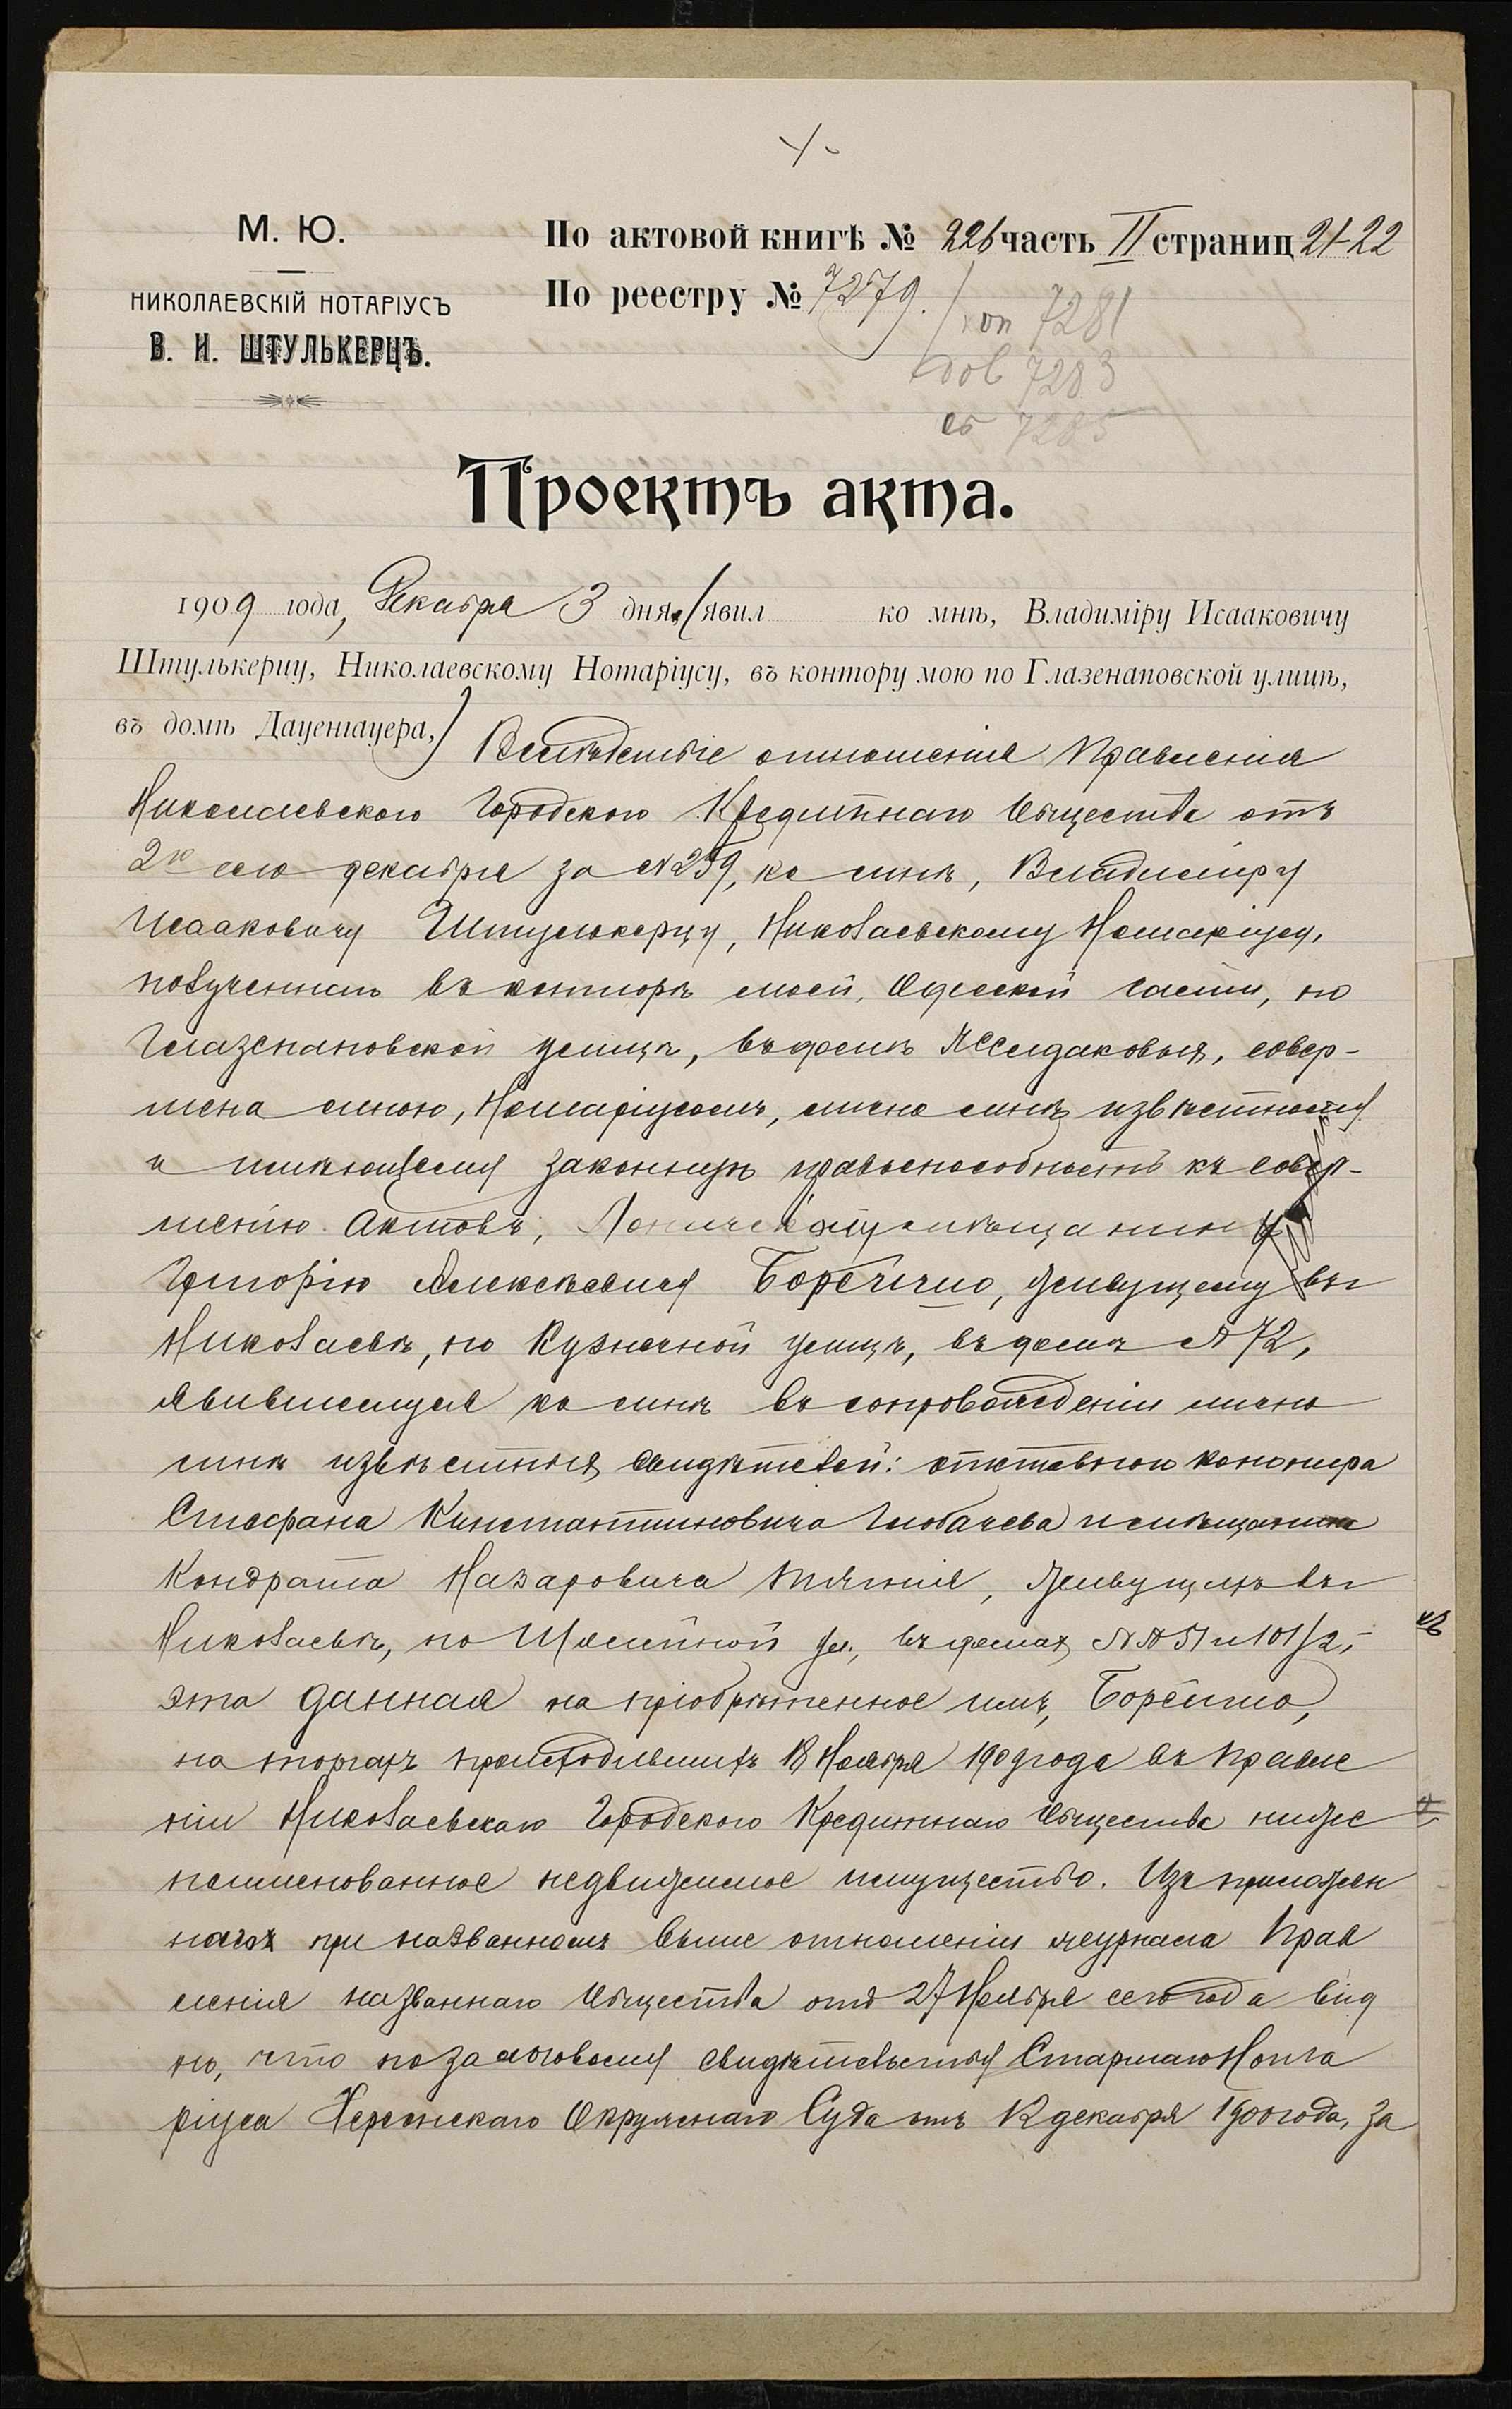 М. Ю.
НИКОЛАЕВСКІЙ НОТАРІУСЪ
В. И. ШТУЛЬКЕРЦЪ.
По актовой книгѣ № 226 часть II страниц 21-22
По реестру № 7279.
коп 7281
дов 7283
7285
Проектъ акта.
1909 года, Декабря 3 дня, явил ко мнѣ, Владиміру Исааковичу
Штулькерцу, Николаевскому Нотаріусу, въ контору мою по Глазенаповской улицѣ,
въ домѣ Дауенгауера,
Вслѣдствіе отношенія Правленія
Николаевского Городского Кредитнаго Общества отъ
2го сего декабря за № 259, ко мнѣ, Владиміру
Исааковичу Штулькерцу, Николаевскому Нотаріусу,
полученнаго въ конторѣ моей, Одесской части, по
Глазенаповской улицѣ, въ домѣ совер-
шена мною, Нотаріусомъ, лично мнѣ извѣстному
и имѣющему законную правоспособность къ совер-
шенію актовъ,
Григорію Алексѣевичу живущему въ
Николаевѣ, по Кузнечной улицѣ, въ домѣ № 72,
явившемуся ко мнѣ въ сопровожденіи лично
мнѣ извѣстныхъ свидѣтелей: отставного канонира
Стефана Константиновича Глобачева и мѣщанина
Кондрата Назаровича живущихъ въ
Николаевѣ, по ул., въ домах №№ 51 и 101/2,
эта данная на пріобрѣтенное имъ,
на торгахъ происходившихъ 18 Ноября 1909 года въ Правле
ніи Николаевскаго Городского Кредитнаго Общества ниже
поименованное недвижимое имущество. Изъ приложен
наго при названномъ выше отношеніи журнала Прав
ленія названнаго Общества отъ 27 Ноября сего года вид
но, что по залоговому свидѣтельству Старшаго Нота
ріуса Херсонскаго Окружнаго Суда отъ 12 декабря 1900 года, за